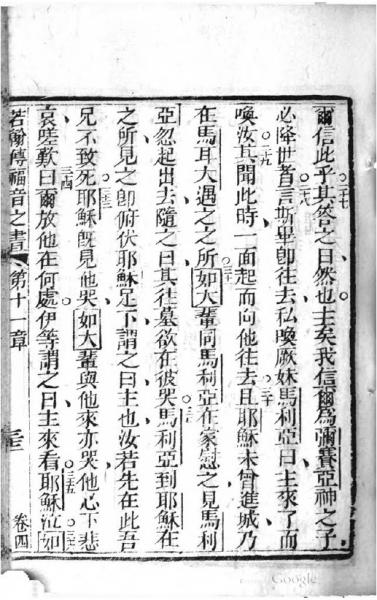 爾信此乎二七其答之曰然也主矣我信爾為彌賽亞神之子
必降世者二八言斯畢卽往去私喚厥妹馬利亞曰主來了而
喚汝二九其聞此時一面起而向他往去三十且耶穌未曾進城乃
在馬耳大遇之之所三一如大輩同馬利亞在家慰之見馬利
亞忽起出去隨之曰其往墓欲在彼哭馬利亞到耶穌在
之所見之卽俯伏耶穌足下謂之曰主也汝若先在此吾
兄不致死三三耶穌既見他哭如大輩與他來亦哭他心下悲
哀嗟歎三四曰爾放他在何處伊等謂之曰主來看三五耶穌泣三六如
若翰傳福音之書 第十一章 卷四
Google